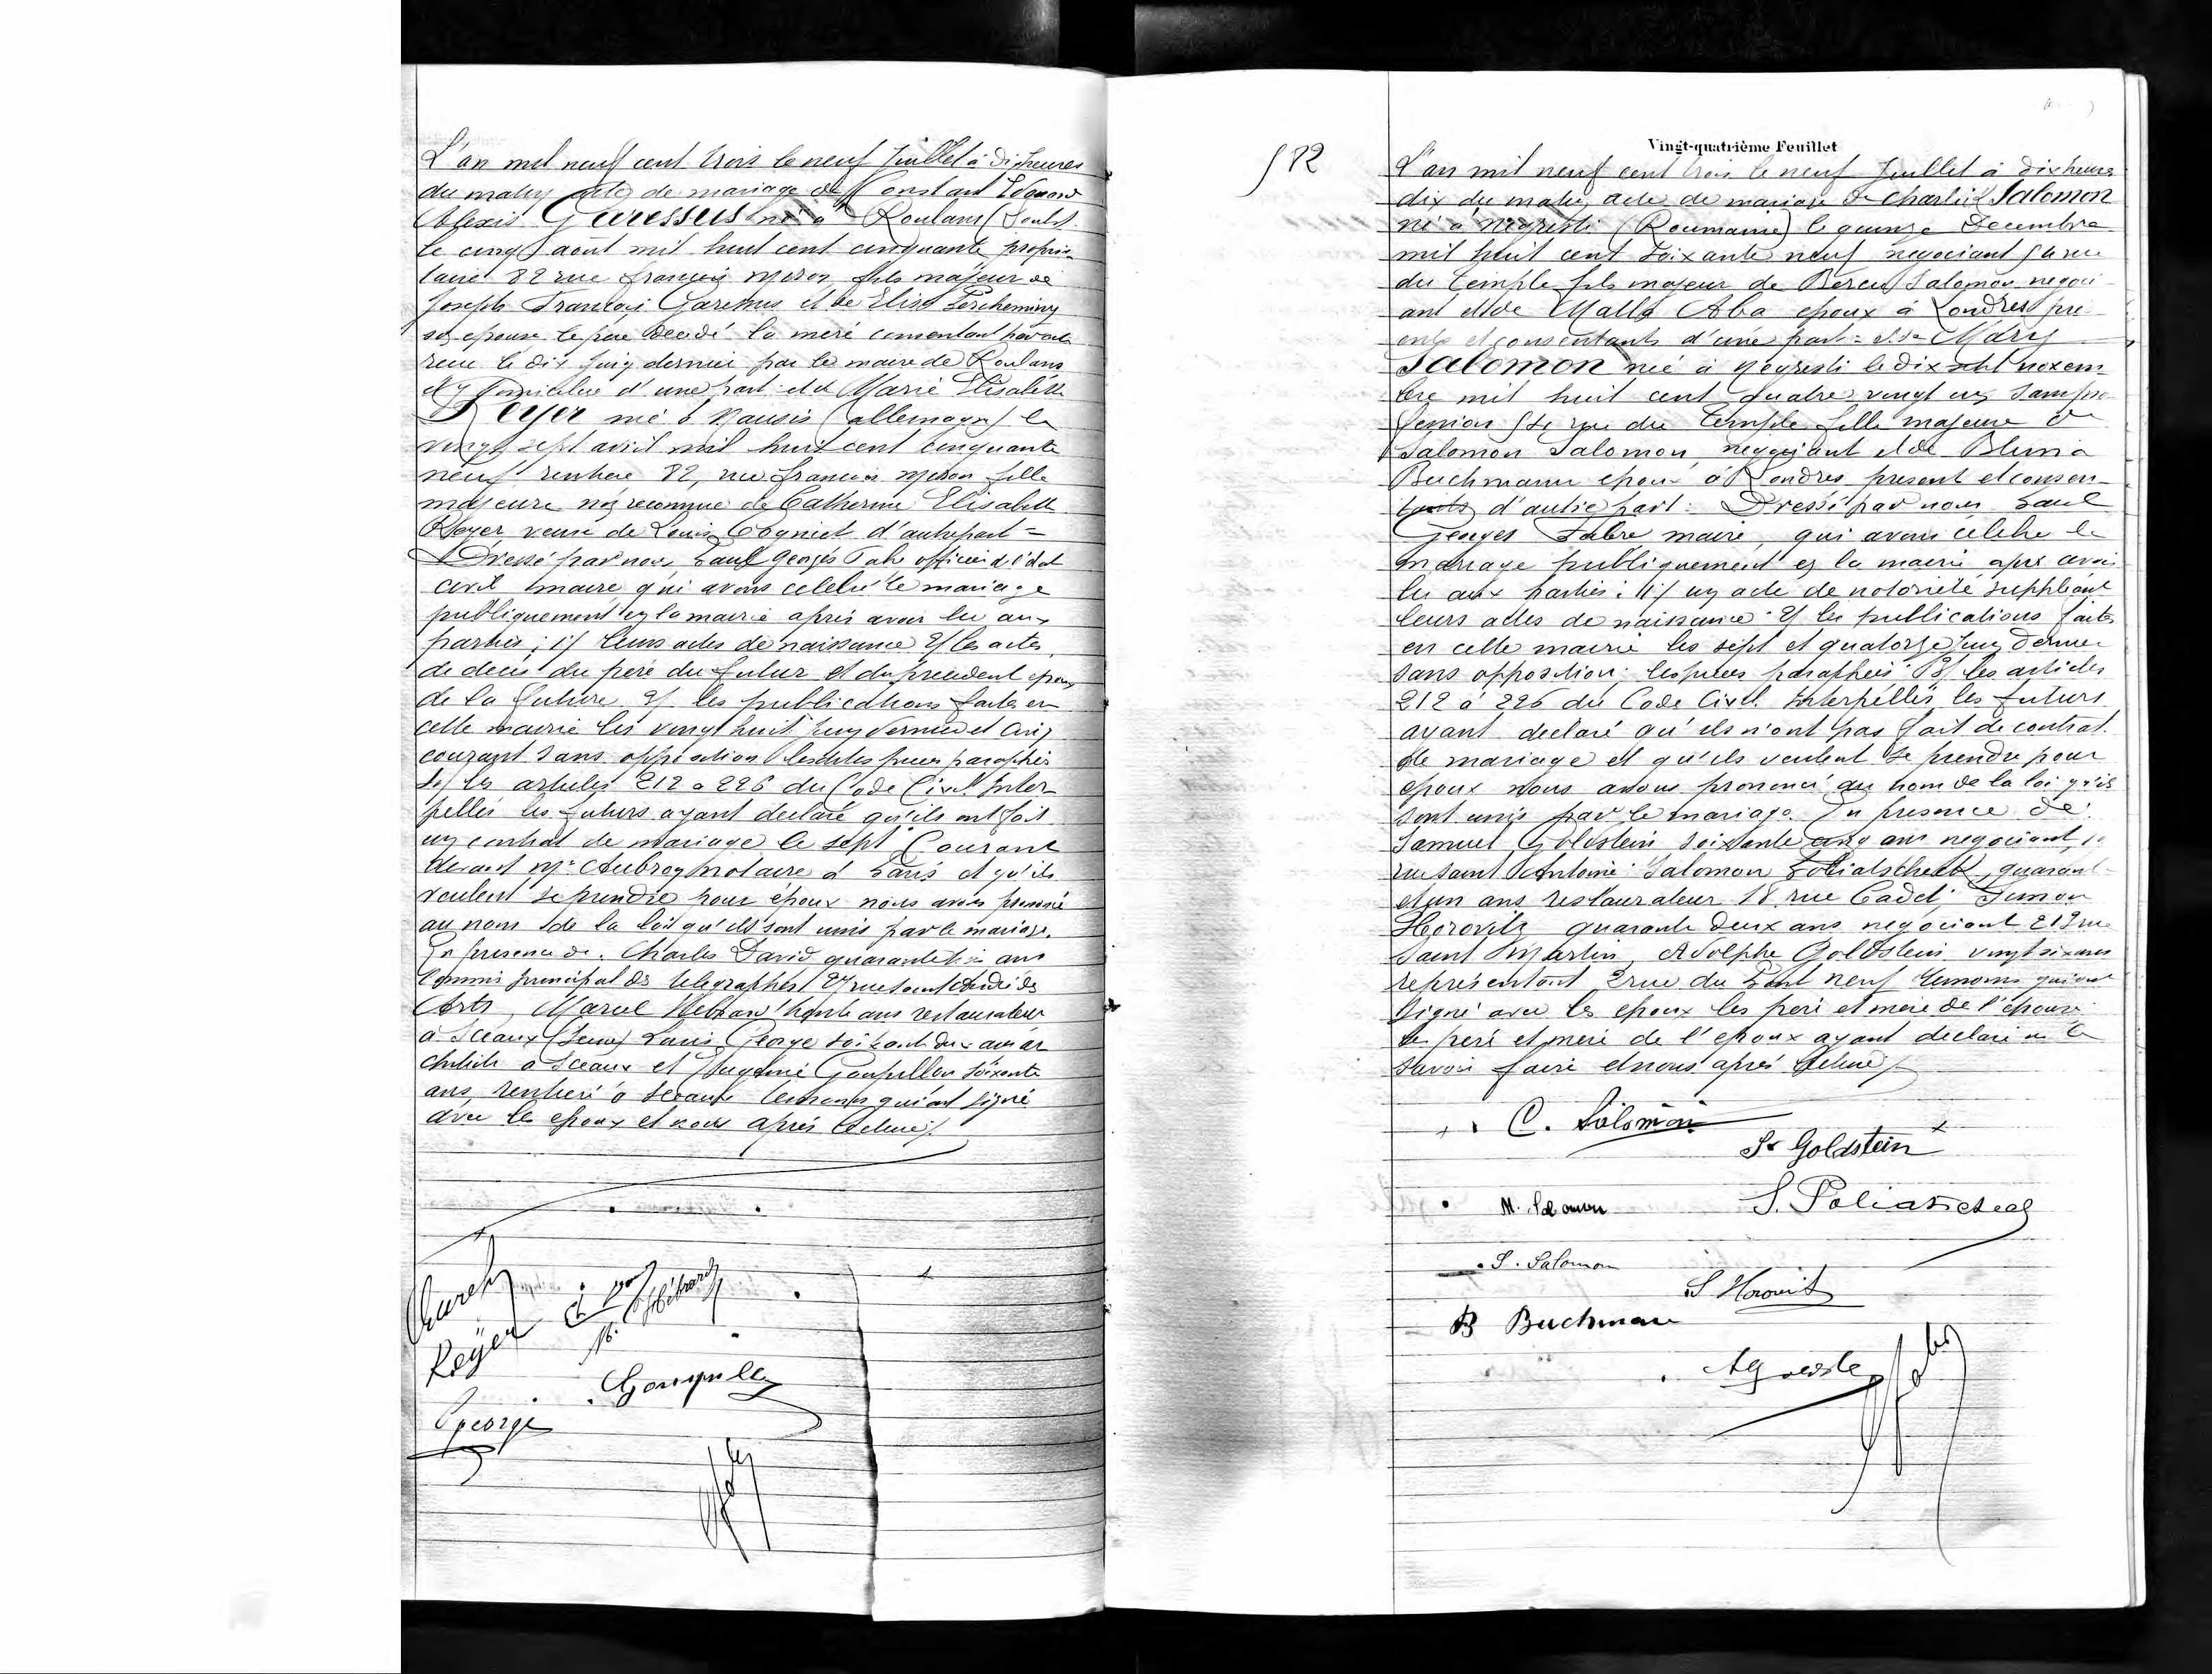 L'an mil neuf cent trois le neuf Juillet à dix heures
du matin acte de mariage de Constant Edouard
Alexis Garessus né à Roulans (Doubs)
le cinq août mil huit cent cinquante proprié
taire 82 rue françois Miron fils majeur de
Joseph François Garessus et de Elise
son epouse le père décédé la mère consentant par acte
reçu le dix Juin dernier par le maire de Roulans
d'une part et de Marie Elisabeth
Royer née à (allemagne) le
vingt sept avril mil huit cent cinquante
neuf rentière 82, rue françois Miron fille
majeure non reconnue de Catherine Elisabeth
Royer veuve de Louis Cogniet d'autre part =
Dressé par nous Paul Georges Fabre officier de l'état
civil maire qui avons celebré le mariage
publiquement en la mairie après avoir lu aux
parties ; 1/ leurs actes de naissance 2/ les actes
de decès du père du futur et du precedent epoux
de la future 3/ les publications faites en
cette mairie les vingt huit Juin dernier et cinq
courant sans opposition lesdites pieces paraphées
4/ les articles 212 a 226 du Code Civil Inter
pellés les futurs ayant declaré qu'ils ont fait
un contrat de mariage le sept Courant
devant Me Aubron notaire à Paris et qu'ils
veulent se prendre pour époux nous avons prononcé
au nom de la loi qu'ils sont unis par le mariage.
En presence de. Charles David quarante trois ans
Commis principal des telegraphes 27 rue saint André des
Arts, Marcel Hebrard trente ans restaurateur
à Sceaux (Seine) Louis George soixante deux ans ar
chitecte a Sceaux et Eugène Goupillon soixante
ans, rentier à Sceaux temoins qui ont signé
avec les epoux et nous après lecture/.
Royer
Goupillon
George
Vingt-quatrième Feuillet
582
L'an mil neuf cent trois le neuf Juillet à dix heures
dix du matin, acte de mariage de Charles Salomon
né à Negresti (Roumanie) le quinze Decembre
mil huit cent soixante neuf negociant rue
du Temple fils majeur de Bercu Salomon negoci
ant et de Malka Aba epoux à Londres pre
ents et consentants d'une part = et de Mary
Salomon née à Negresti le dix sept novem
bre mil huit cent quatre vingt un sans pro
fession rue du Temple fille majeure de
Salomon Salomon, negociant et de Bluma
Buchmann epoux à Londres present et consen-
tants d'autre part : Dressé par nous Paul
Georges Fabre maire, qui avons célebré le
mariage publiquement en la mairie après avoir
lu aux parties : 1/ un acte de notoriété suppléant
leurs actes de naissance 2/ les publications faites
en cette mairie les sept et quatorze Juin dernier
sans opposition ; les pieces paraphées 3/ les articles
212 à 226 du Code Civil. Interpellés les futurs
ayant declaré qu'ils n'ont pas fait de contrat
de mariage et qu'ils veulent se prendre pour
epoux nous avons prononcé au nom de la loi qu'ils
sont unis par le mariage. En presence de
Samuel Goldstein soixante cinq ans negociant,
rue saint Antoine Salomon quarante
et un ans restaurateur 18 rue Cadet, Simon
Horovitz quarante deux ans negociant 219 rue
Saint Martin, Adolphe Goldstein vingt six ans
representant 2 rue du Pont neuf temoins qui ont
signé avec les epoux les père et mère de l'épouse
les père et mère de l'epoux ayant declaré ne le
savoir faire et nous après lecture/.
C. Salomon
Sr Goldstein
M. Salomon
S. Salomon
S Horovitz
B Buchman